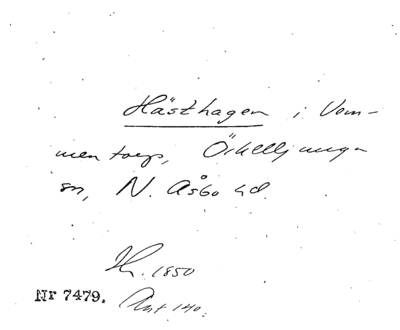 Hästhagen i Vem-
mentorps, Örkelljunga
sn, N. Åsbo hd.
Th. 1850
Nr 7479. Ant 140.